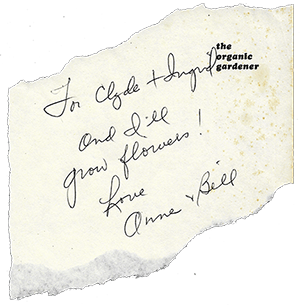 the
organic
gardener
For Clyde + Ingrid
And I'll
grow flowers!
Love
Anne & Bill